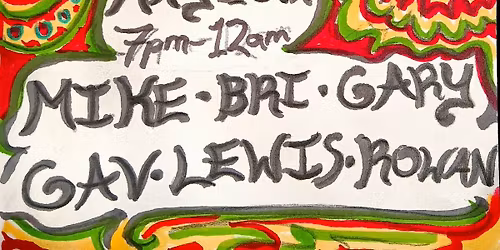 7pm-12am
MIKE·BRI·GARY
GAV·LEWIS·ROWAN